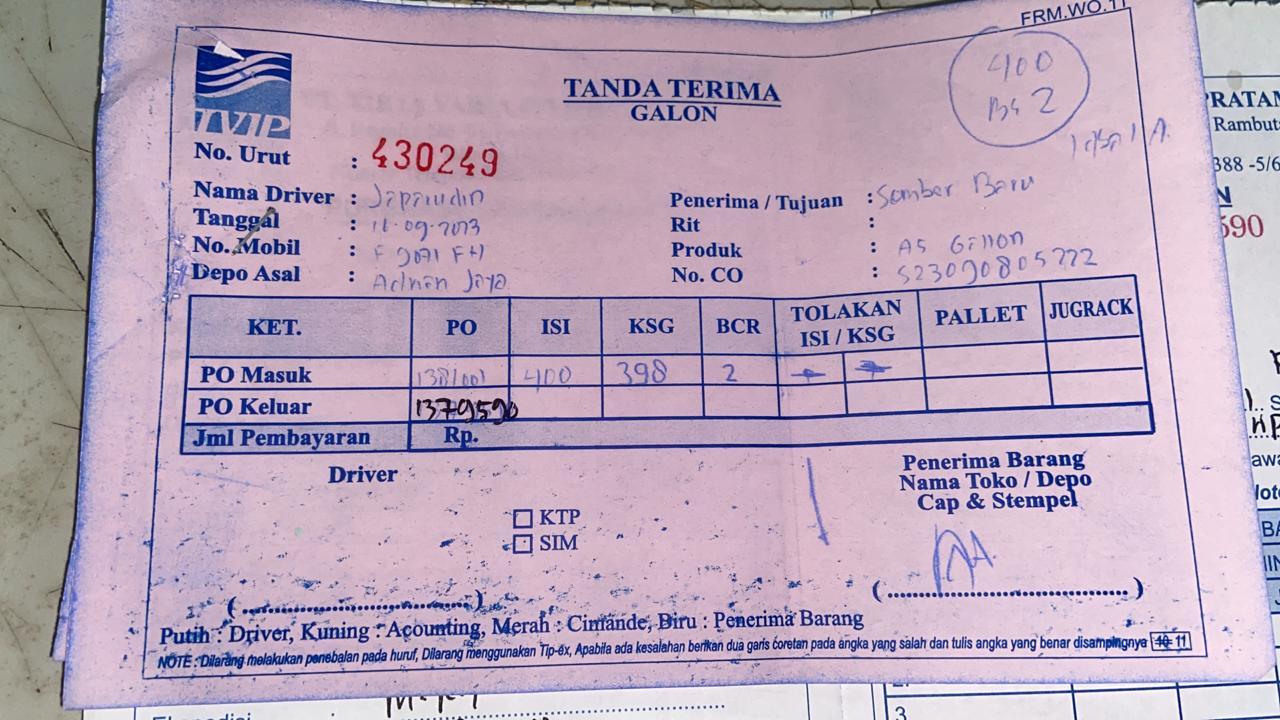 FRM.WO.11
TVIP
TANDA TERIMA
GALON
400
BS 2
No. Urut : 430249
Nama Driver : Japarudin
Tanggal : 11-09-2023
No. Mobil : F 9071 FH
Depo Asal : Adnan Jaya
Penerima / Tujuan : Somber Baru
Rit :
Produk : A5 Gallon
No. CO : S23090805222
KET. PO ISI KSG BCR TOLAKAN ISI / KSG PALLET JUGRACK
PO Masuk 1381001 400 398 2
PO Keluar 1379590
Jml Pembayaran Rp.
Driver
KTP
SIM
Penerima Barang
Nama Toko / Depo
Cap & Stempel
(..............................)
(..............................)
Putih : Driver, Kuning : Acounting, Merah : Cimande, Biru : Penerima Barang
NOTE : Dilarang melakukan penebalan pada huruf, Dilarang menggunakan Tip-ex, Apabila ada kesalahan berikan dua garis coretan pada angka yang salah dan tulis angka yang benar disampingnya 10 11
Rambuta
388 -5/6
N
590
3